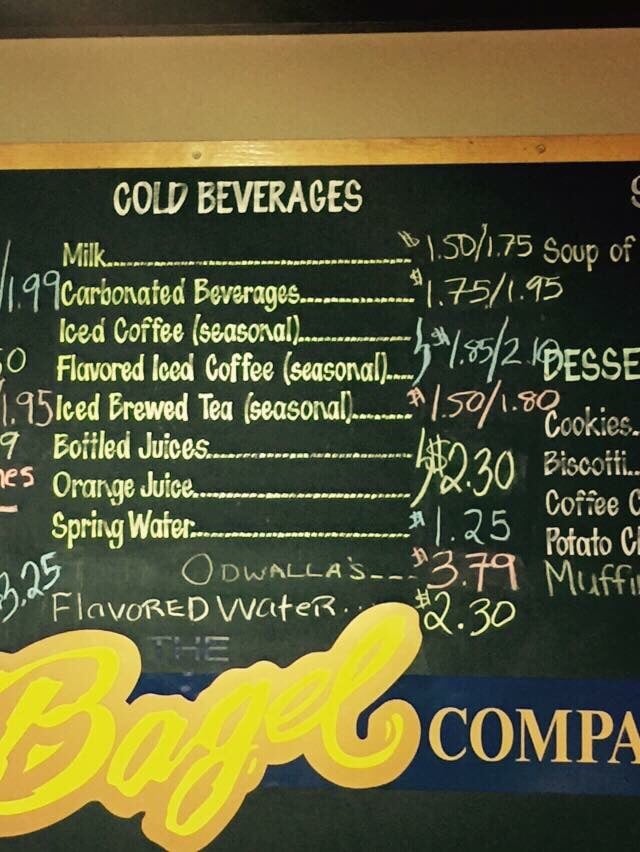 COLD BEVERAGES
Milk $1.50/1.75
Carbonated Beverages $1.75/1.95
Iced Coffee (seasonal)
Flavored Iced Coffee (seasonal) $1.85/2.10
Iced Brewed Tea (seasonal) $1.50/1.80
Bottled Juices
Orange Juice $2.30
Spring Water $1.25
ODWALLA'S --- $3.79
FlavORED WateR... $2.30
/1.99
50
1.95
9
nes
3.25
Soup of
DESSE
Cookies
Biscotti
Coffee C
Potato Ch
Muffin
THE
Bagel
COMPA